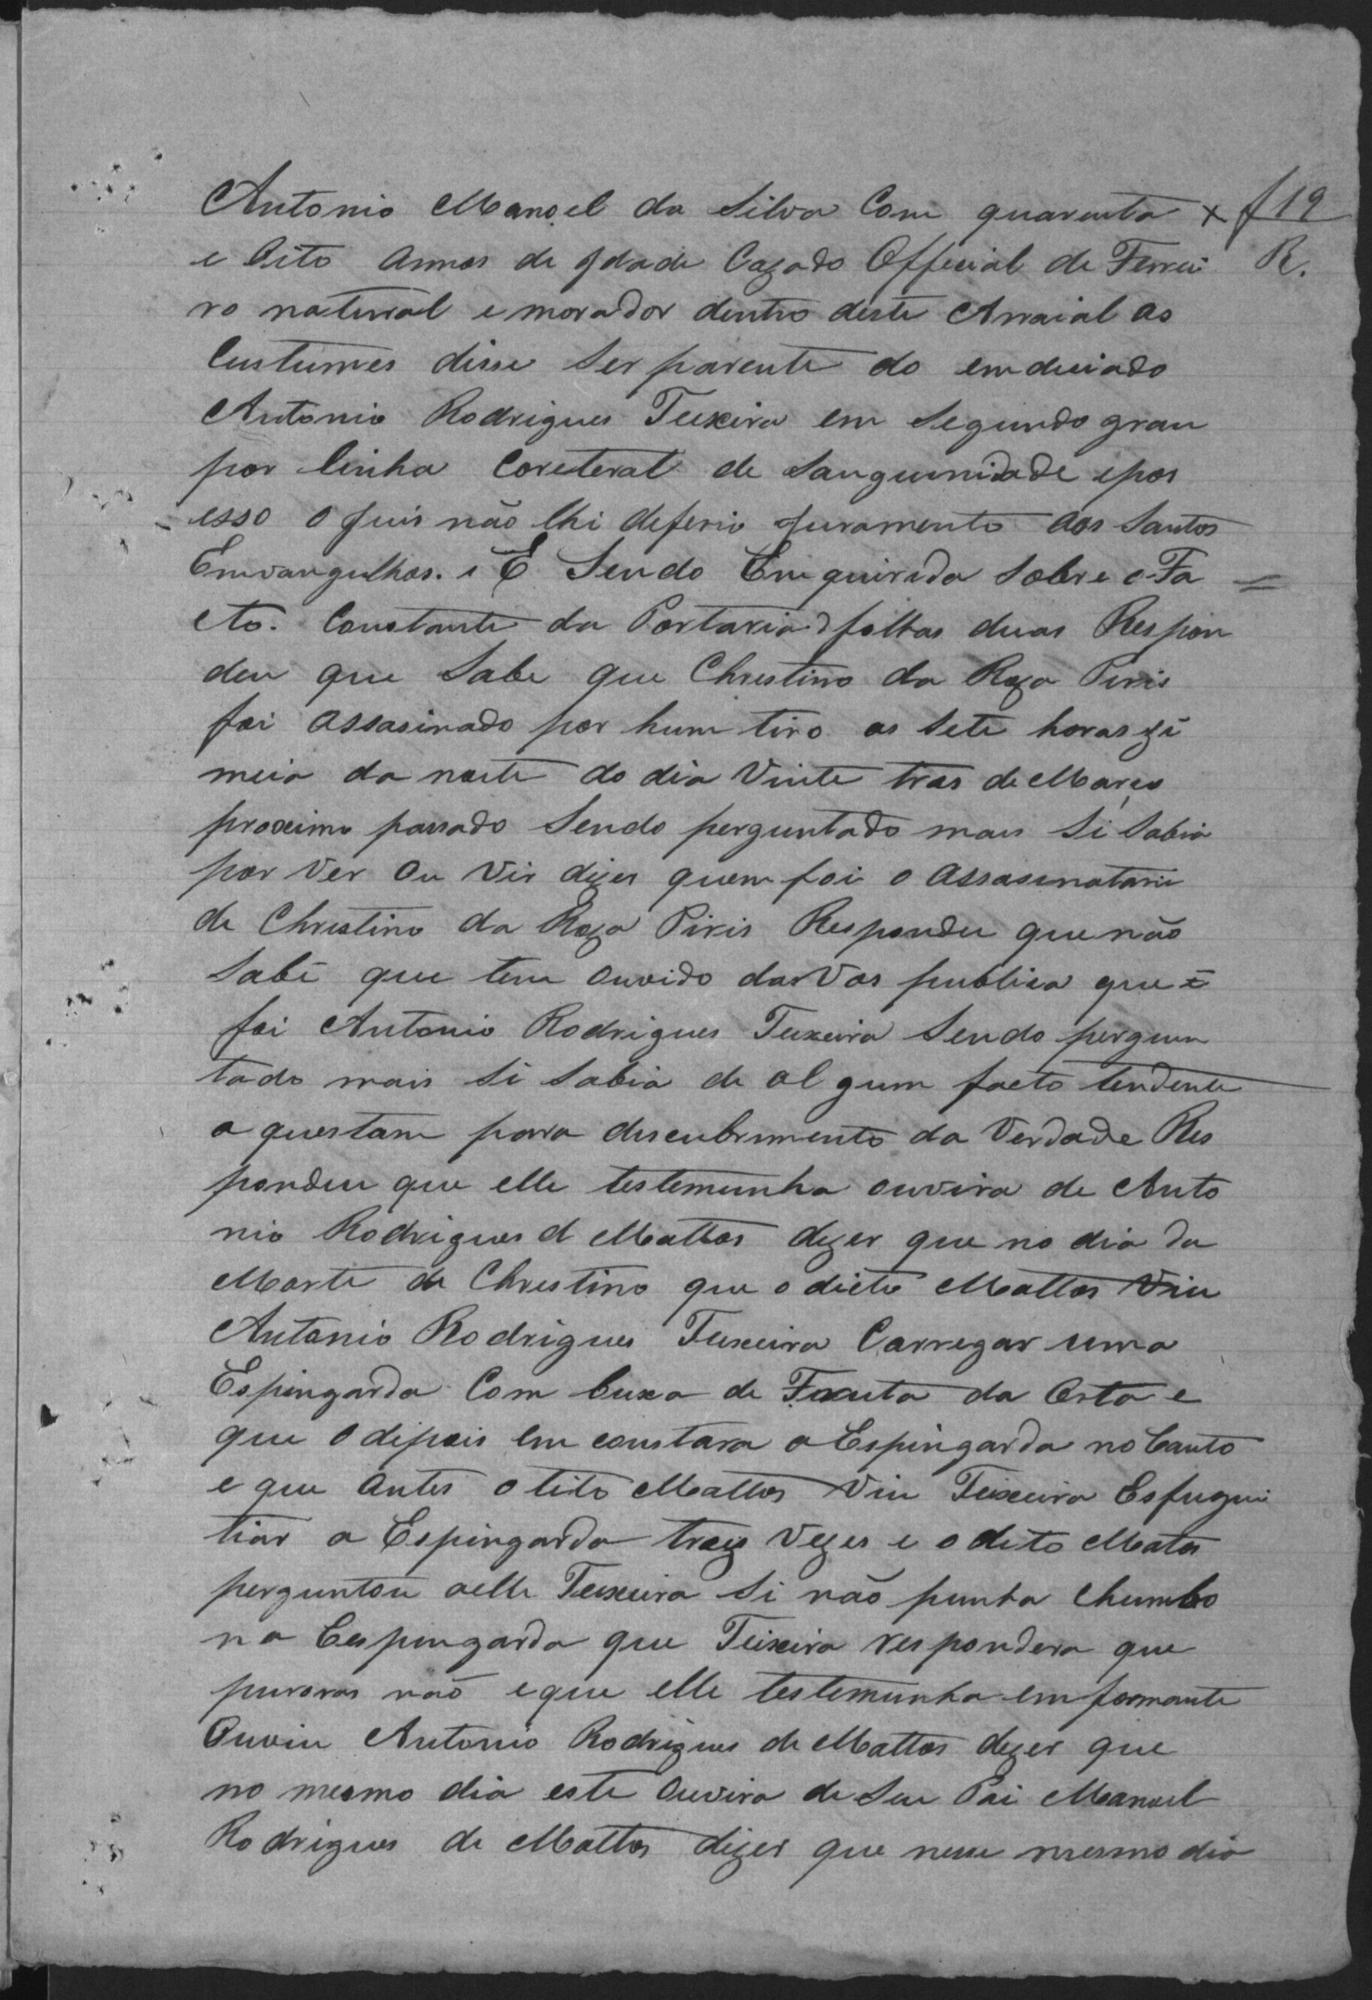 Antonio Manoel da Silva Com quarenta x f 19
e Oito Annos de Idade Cazado Official de Ferrei R.
ro natural e morador dentro deste Arraial ao
Custumes disse Ser parente do emdiciado
Antonio Rodrigues Teixeira em Segundo grau
por linha Coreteral de Sanguinidade epor
esso o Juis não lhi deferio Juramento aos Santos
Emvangelhos. e E Sendo Emquirido Sobre o Fa =
cto. Constante da Portaria d folhas duas Respon
deu que Sabe que Christino da Roza Piris
foi assasinado por hum tiro as Sete horas ei
meia da noite do dia Vinte tras de Março
proximo passado Sendo perguntado mais Si Sabia
por Ver Ou Vir dizer quem foi o assasinatario
de Christino da Roza Piris Respondeu que não
Sabe que tem Ouvido da Vos publica que =
foi Antonio Rodrigues Teixeira Sendo pergun
tado mais Si Sabia de algum facto tendente
a questam para discubrimento da Verdade Res
pondeu que elle testemunha ouvira de Anto
nio Rodrigues d Mattos dizer que no dia da
Morte de Christino que o dicto Mattos Viu
Antonio Rodrigues Teixeira Carregar uma
Espingarda Com buxa de da Orta e
que Odipois em constara a Espingarda no Canto
e que Antes o tito Mattos Viu Teixeira Esfugui
tiar a Espingarda trez Vezes e o dito Matos
perguntou aelle Teixeira Si não punha Chumbo
na Cespingarda que Teixeira respondera que
puroras não eque elle testemunha emformante
Ouviu Antonio Rodrigues de Mattos dizer que
no mesmo dia este Ouvira de Seu Pai Manoel
Rodrigues de Mattos dizer que nesse mesmo dia